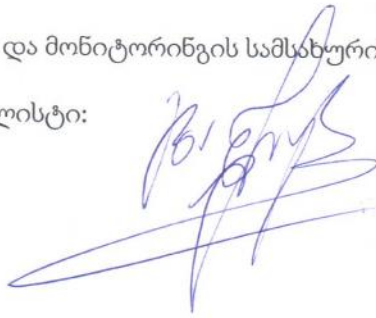 და მონიტორინგის სამსახური
ლისტი: